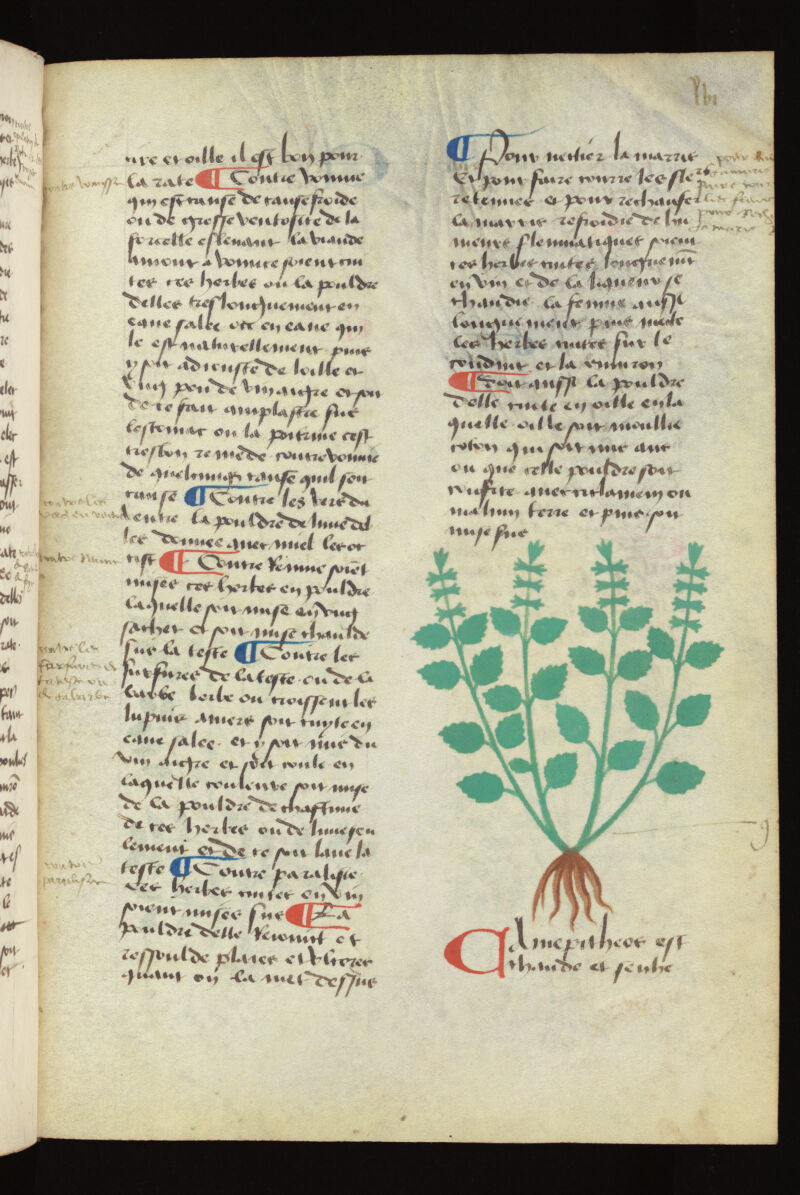 lvi
ure et oille il est bon pour
la rate ¶ Contre vomite
qui est cause de cause froide
ou de grosse ventosité de la
forcelle eslevant la viande
amont a vomite soient cui
tes ces herbes ou la pouldre
delles treslonguement en
eaue salee ou en eaue qui
le est naturellement puis
y soit adiouste de loille et
vng peu de vin aigre et soit
de ce fait amplastre sur
lestomac ou la poitrine cest
tresbon remede contre vomite
de quelcunque cause quil soit
cause ¶ Contre les vers du
ventre la pouldre de lune del
les donnee avec miel les oc
cist ¶ Contre Reume soient
mises ces herbes en pouldre
laquelle soit mise en vng
sachet et soit mise chaulde
sur la teste ¶ Contre les
furfures de la teste ou de la
barbe lerbe ou croissent les
lupins amers soit cuyte en
eaue salee et y soit mis du
vin aigre et soit coule en
laquelle couleure soit mise
de la pouldre de chascune
de ces herbes ou de lune seu
lement et de ce soit lave la
teste ¶ Contre paralisie
ces herbes cuites en vin
soient mises sus ¶ La
pouldre delle Reioint et
ressoulde plaies et vlceres
quant on la met dessus
¶ Pour nectier la marris
et pour faire courre les fleurs
retenues et pour rechaufer
la marris refroidie de hu
meurs flenmatiques soient
ces herbes cuites longuement
en vin et de la liqueur se
chaudie la femme aussi
longuement puis mecte
les herbes cuites sur le
conduit et la environ
¶ Soit aussi la pouldre
delle cuite en oille en la
quelle oille soit moullie
coton qui soit mis aux
ou que celle pouldre soit
confite avec ciclamein ou
malum terre et puis soit
mise sus
Camepitheos est
chaude et seiche
contre vomisse
contre les
vers du ventre
contre Reume
contre les
furfures de
la teste ou
de la barbe
contre
paralisie